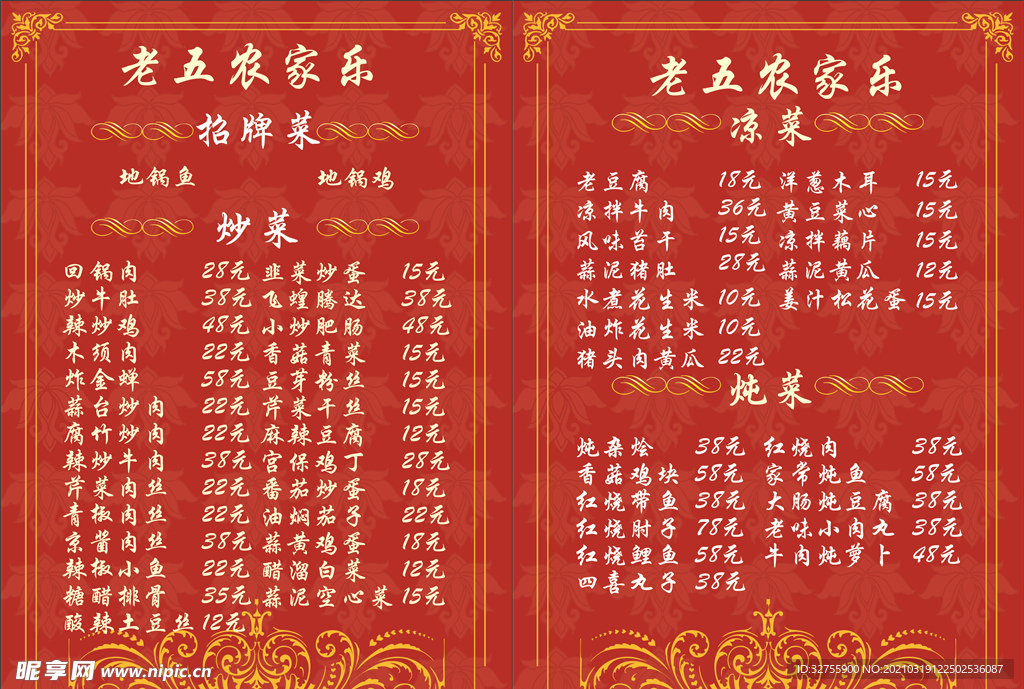 老五农家乐
招牌菜
地锅鱼 地锅鸡
炒菜
回锅肉 28元 韭菜炒蛋 15元
炒牛肚 38元 飞蝗腾达 38元
辣炒鸡 48元 小炒肥肠 48元
木须肉 22元 香菇青菜 15元
炸金蝉 58元 豆芽粉丝 15元
蒜台炒肉 22元 芹菜干丝 15元
腐竹炒肉 22元 麻辣豆腐 12元
辣炒牛肉 38元 宫保鸡丁 28元
芹菜肉丝 22元 番茄炒蛋 18元
青椒肉丝 22元 油焖茄子 22元
京酱肉丝 38元 蒜黄鸡蛋 18元
辣椒小鱼 22元 醋溜白菜 12元
糖醋排骨 35元 蒜泥空心菜 15元
酸辣土豆丝 12元
昵享网 www.nipic.cn
老五农家乐
凉菜
老豆腐 18元 洋葱木耳 15元
凉拌牛肉 36元 黄豆菜心 15元
风味苔干 15元 凉拌藕片 15元
蒜泥猪肚 28元 蒜泥黄瓜 12元
水煮花生米 10元 姜汁松花蛋 15元
油炸花生米 10元
猪头肉黄瓜 22元
炖菜
炖杂烩 38元 红烧肉 38元
香菇鸡块 58元 家常炖鱼 58元
红烧带鱼 38元 大肠炖豆腐 38元
红烧肘子 78元 老味小肉丸 38元
红烧鲤鱼 58元 牛肉炖萝卜 48元
四喜丸子 38元
ID:32755900 NO:20210319122502536087